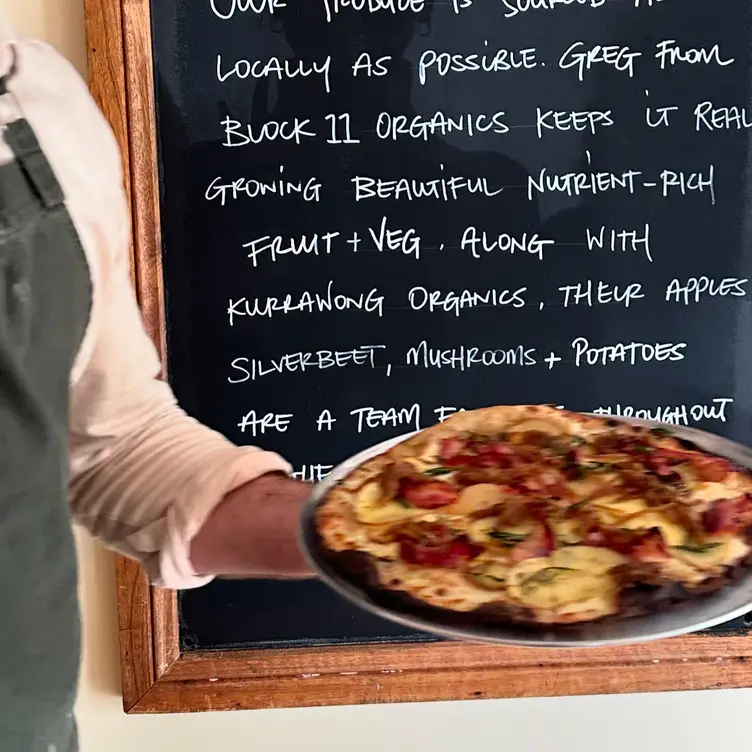 OUR PRODUCE IS SOURCED AS
LOCALLY AS POSSIBLE. GREG FROM
BLOCK 11 ORGANICS KEEPS IT REAL
GROWING BEAUTIFUL NUTRIENT-RICH
FRUIT + VEG. ALONG WITH
KURRAWONG ORGANICS, THEIR APPLES
SILVERBEET, MUSHROOMS + POTATOES
ARE A TEAM THROUGHOUT